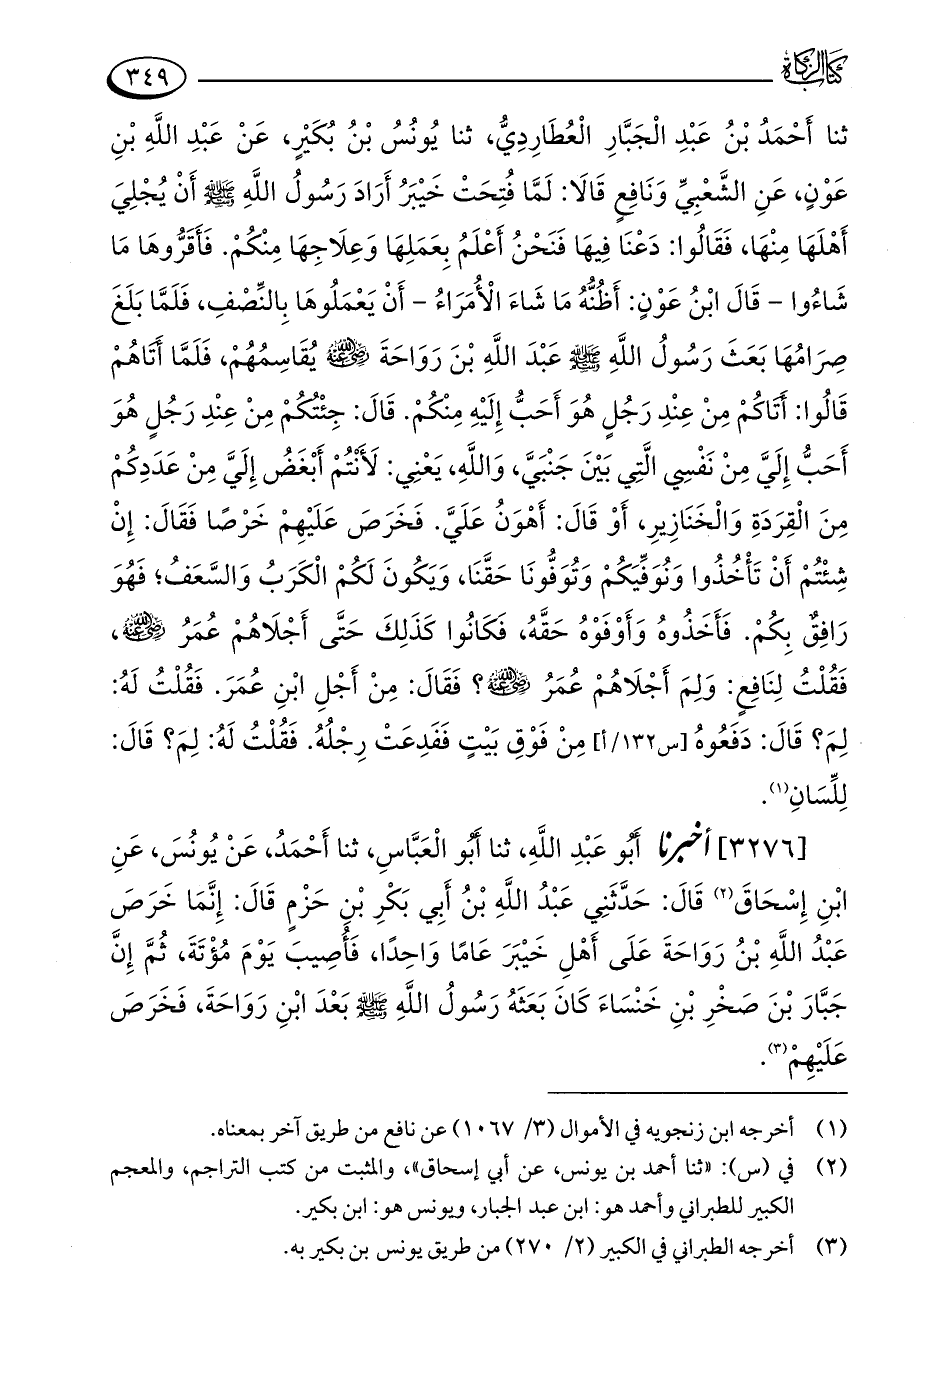 كتاب الزكاة
٣٤٩
ثنا أَحْمَدُ بْنُ عَبْدِ الْجَبَّارِ الْعُطَارِدِيُّ، ثنا يُونُسُ بْنُ بُكَيْرٍ، عَنْ عَبْدِ اللَّهِ بْنِ
عَوْنٍ، عَنِ الشَّعْبِيِّ وَنَافِعٍ قَالَا: لَمَّا فُتِحَتْ خَيْبَرُ أَرَادَ رَسُولُ اللَّهِ ﷺ أَنْ يُجْلِيَ
أَهْلَهَا مِنْهَا، فَقَالُوا: دَعْنَا فِيهَا فَنَحْنُ أَعْلَمُ بِعَمَلِهَا وَعِلَاجِهَا مِنْكُمْ. فَأَقَرُّوهَا مَا
شَاءُوا - قَالَ ابْنُ عَوْنٍ: أَظُنُّهُ مَا شَاءَ الْأُمَرَاءُ - أَنْ يَعْمَلُوهَا بِالنِّصْفِ، فَلَمَّا بَلَغَ
صِرَامُهَا بَعَثَ رَسُولُ اللَّهِ ﷺ عَبْدَ اللَّهِ بْنَ رَوَاحَةَ رضي الله عنه يُقَاسِمُهُمْ، فَلَمَّا أَتَاهُمْ
قَالُوا: أَتَاكُمْ مِنْ عِنْدِ رَجُلٍ هُوَ أَحَبُّ إِلَيْهِ مِنْكُمْ. قَالَ: جِئْتُكُمْ مِنْ عِنْدِ رَجُلٍ هُوَ
أَحَبُّ إِلَيَّ مِنْ نَفْسِي الَّتِي بَيْنَ جَنْبَيَّ، وَاللَّهِ، يَعْنِي: لَأَنْتُمْ أَبْغَضُ إِلَيَّ مِنْ عَدَدِكُمْ
مِنَ الْقِرَدَةِ وَالْخَنَازِيرِ، أَوْ قَالَ: أَهْوَنُ عَلَيَّ. فَخَرَصَ عَلَيْهِمْ خَرْصًا فَقَالَ: إِنْ
شِئْتُمْ أَنْ تَأْخُذُوا وَنُوَفِّيَكُمْ وَتُوَفُّونَا حَقَّنَا، وَيَكُونَ لَكُمُ الْكَرَبُ وَالسَّعَفُ؛ فَهُوَ
رَافِقٌ بِكُمْ. فَأَخَذُوهُ وَأَوْفَوْهُ حَقَّهُ، فَكَانُوا كَذَلِكَ حَتَّى أَجْلَاهُمْ عُمَرُ رضي الله عنه،
فَقُلْتُ لِنَافِعٍ: وَلِمَ أَجْلَاهُمْ عُمَرُ رضي الله عنه؟ فَقَالَ: مِنْ أَجْلِ ابْنِ عُمَرَ. فَقُلْتُ لَهُ:
لِمَ؟ قَالَ: دَفَعُوهُ [س١٣٢/أ] مِنْ فَوْقِ بَيْتٍ فَفَدِعَتْ رِجْلُهُ. فَقُلْتُ لَهُ: لِمَ؟ قَالَ:
لِلِّسَانِ(١).
[٣٢٧٦] أخبرنا أَبُو عَبْدِ اللَّهِ، ثنا أَبُو الْعَبَّاسِ، ثنا أَحْمَدُ، عَنْ يُونُسَ، عَنِ
ابْنِ إِسْحَاقَ(٢) قَالَ: حَدَّثَنِي عَبْدُ اللَّهِ بْنُ أَبِي بَكْرِ بْنِ حَزْمٍ قَالَ: إِنَّمَا خَرَصَ
عَبْدُ اللَّهِ بْنُ رَوَاحَةَ عَلَى أَهْلِ خَيْبَرَ عَامًا وَاحِدًا، فَأُصِيبَ يَوْمَ مُؤْتَةَ، ثُمَّ إِنَّ
جَبَّارَ بْنَ صَخْرِ بْنِ خَنْسَاءَ كَانَ بَعَثَهُ رَسُولُ اللَّهِ ﷺ بَعْدَ ابْنِ رَوَاحَةَ، فَخَرَصَ
عَلَيْهِمْ(٣).
(١) أخرجه ابن زنجويه في الأموال (٣/ ١٠٦٧) عن نافع من طريق آخر بمعناه.
(٢) في (س): «ثنا أحمد بن يونس، عن أبي إسحاق»، والمثبت من كتب التراجم، والمعجم
الكبير للطبراني وأحمد هو: ابن عبد الجبار، ويونس هو: ابن بكير.
(٣) أخرجه الطبراني في الكبير (٢/ ٢٧٠) من طريق يونس بن بكير به.